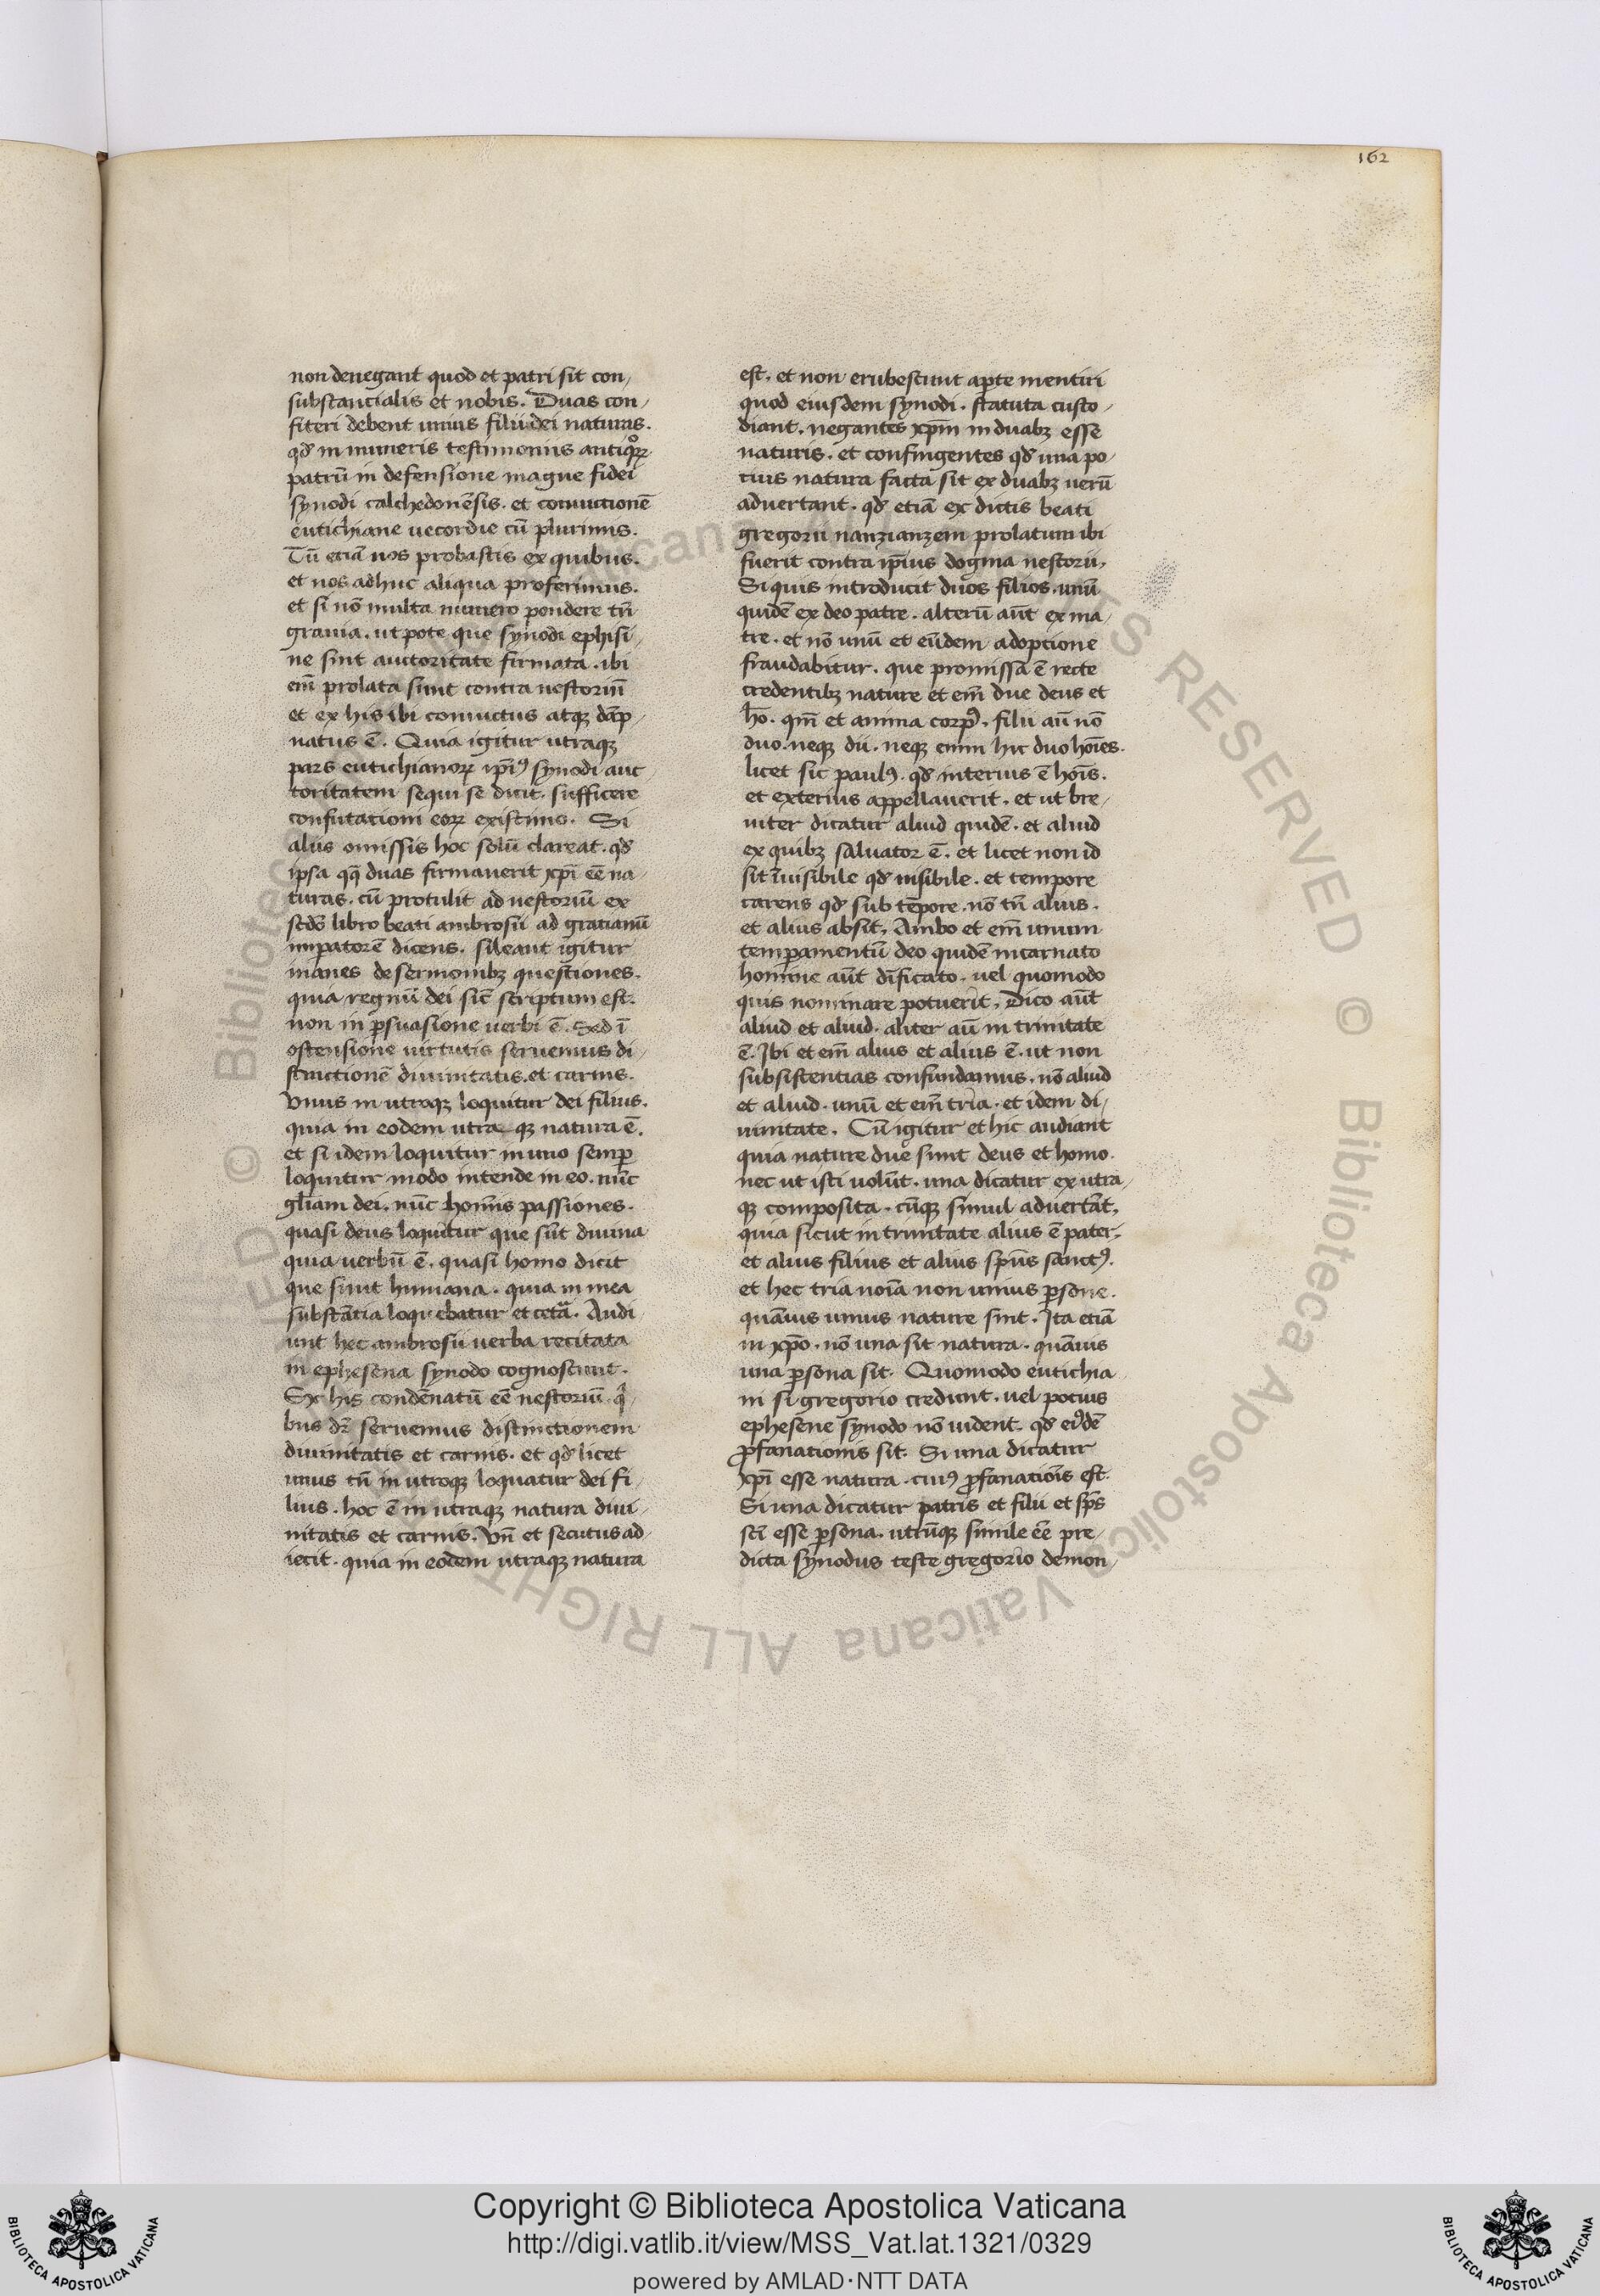 162
non denegant quod et patri sit con
substantialis et nobis. Duas con
fiteri debent unius filii dei naturas.
qđ in numeris testimoniis antiquoꝝ
patrū in defensione magne fidei
synodi calchedonēsis. et conuictionē
eutichiane uecordie cū plurimis.
Tū etiā nos probastis ex quibus.
et nos adhuc aliqua proferimus.
et si nō multa numero pondere tn̄
grauia. ut pote que synodi ephisi
ne sint auctoritate firmata. ibi
em̄ prolata sunt contra nestoriū
et ex his ibi conuictus atqꝫ dāp
natus ē. Quia igitur utraqꝫ
pars eutichianoꝝ ip̄iꝰ synodi auc
toritatem sequi se dicit. sufficere
confutationi eoꝝ existimo. Si
aliis omissis hoc solū clareat. qđ
ipsa qq̄ duas firmauerit xp̄i eē na
turas. cū protulit ad nestoriū ex
sc̄do libro beati ambrosii ad gratianū
imperatorē dicens. sileant igitur
inanes de sermonibꝫ questiones.
quia regnū dei sic̄ scriptum est.
non in ꝑsuasione uerbi ē. Sed ī
ostensione uirtutis seruemus di
stinctionē diuinitatis. et carnis.
Vnus in utroqꝫ loquitur dei filius.
quia in eodem utra qꝫ natura ē.
et si idem loquitur in uno semꝑ
loquitur modo intende in eo. nūc
gl̄iam dei. nūc hoīnis passiones.
quasi deus loquitur que sūt diuina
quia uerbū ē. quasi homo dicit
que sunt humana. quia in mea
substātia loquebatur et cetā. Audi
unt hec ambrosii uerba recitata
in ephesena synodo cognoscunt.
Ex his condēnatū eē nestoriū. qi
bus dr̄ seruemus distinctionem
diuinitatis et carnis. et qđ licet
unus tn̄ in utroqꝫ loquatur dei fi
lius. hoc ē in utraqꝫ natura diui
nitatis et carnis. Vn̄ et secutus ad
iecit. quia in eodem utraqꝫ natura
est. et non erubescunt aꝑte mentiri
quod eiusdem synodi. statuta custo
diant. negantes xp̄m in duabꝫ esse
naturis. et confingentes qđ una po
tius natura facta sit ex duabꝫ uerū
aduertant. qđ etiā ex dictis beati
gregorii nanzianzem prolatum ibi
fuerit contra ip̄ius dogma nestorii.
Si quis introducit duos filios. unū
quidē ex deo patre. alterū aūt ex ma
tre. et nō unū et eūdem adoptione
fraudabitur. que promissa ē recte
credentibꝫ nature et em̄ due deus et
hō. qm̄ et anima corpꝰ. filii aū nō
duo. neqꝫ dii. neqꝫ enim hic duo hoīes.
licet sic paulꝰ. qđ interius ē hoīs.
et exterius appellauerit. et ut bre
uiter dicatur aliud quidē. et aliud
ex quibꝫ saluator ē. et licet non id
sit īuisibile qđ uisibile. et tempore
carens qđ sub tēpore. nō tn̄ alius.
et alius absit. Ambo et em̄ unum
temperamentū deo quidē incarnato
homine aūt dīficato. uel quomodo
quis nominare potuerit. Dico aūt
aliud et aliud. aliter aū in trinitate
ē. Ibi et em̄ alius et alius ē. ut non
subsistentias confundamus. nō aliud
et aliud. unū et em̄ tria. et idem di
uinitate. Cū igitur et hic audiant
quia nature due sunt deus et homo.
nec ut isti uolūt. una dicatur ex utra
qꝫ composita. cūqꝫ simul aduertāt.
quia sicut in trinitate alius ē pater.
et alius filius et alius sp̄us sanctꝰ.
et hec tria noīa non unius ꝑsone.
quāuis unius nature sint. Ita etiā
in xp̄o. nō una sit natura. quāuis
una ꝑsona sit. Quomodo eutichia
ni si gregorio credunt. uel potius
ephesene synodo nō uident. qđ eiꝰdē
ꝓfanationis sit. Si una dicatur
xp̄i esse natura. cuiꝰ ꝓfanatiōis est.
Si una dicatur patris et filii et sp̄s
sc̄i esse ꝑsona. utrūqꝫ simile eē pre
dicta synodus teste gregorio demon
Copyright © Biblioteca Apostolica Vaticana
http://digi.vatlib.it/view/MSS_Vat.lat.1321/0329
powered by AMLAD·NTT DATA
BIBLIOTECA APOSTOLICA VATICANA
BIBLIOTECA APOSTOLICA VATICANA
© Biblioteca Apostolica Vaticana ALL RIGHTS RESERVED